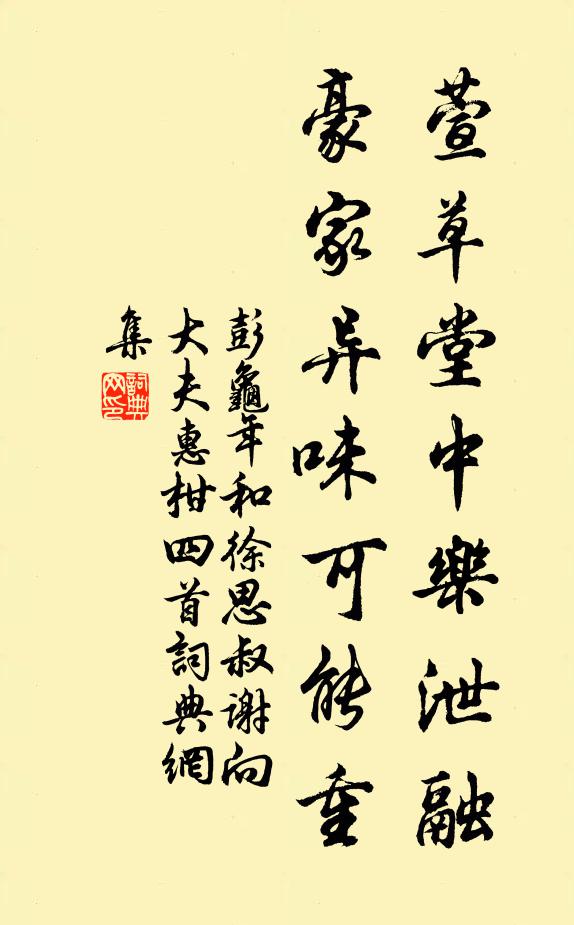 萱草堂中樂泄融
豪家异味可能重
彭龜年和徐思叔谢向
大夫惠柑四首詞典網
集
詞典
网印